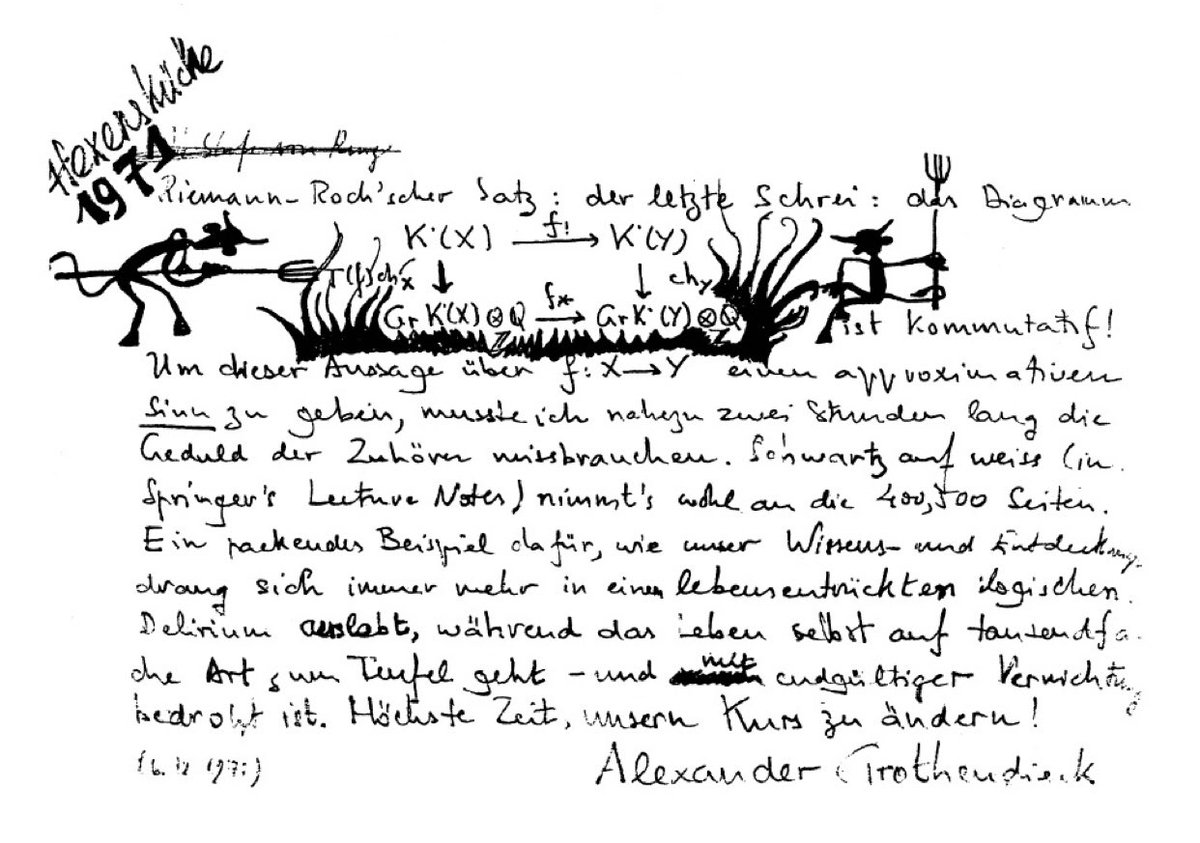 Hexenküche
1971
Riemann-Roch'scher Satz: der letzte Schrei: das Diagramm
K˙(X) f! → K˙(Y)
T(f)ch_X ↓ ↓ ch_Y
Gr K˙(X) ⊗_Z Q f* → Gr K˙(Y) ⊗_Z Q
ist kommutatif!
Um dieser Aussage über f: X → Y einen approximativen
Sinn zu geben, musste ich nahezu zwei Stunden lang die
Geduld der Zuhörer missbrauchen. Schwartz auf weiss (in
Springer's Lecture Notes) nimmt's wohl an die 400, 500 Seiten.
Ein packendes Beispiel dafür, wie unser Wissens- und Entdeckungs
drang sich immer mehr in einem lebensentrückten logischen
Delirium auslebt, während das Leben selbst auf tausendfa
che Art zum Teufel geht - und mit endgültiger Vernichtung
bedroht ist. Höchste Zeit, unsern Kurs zu ändern!
Alexander Grothendieck